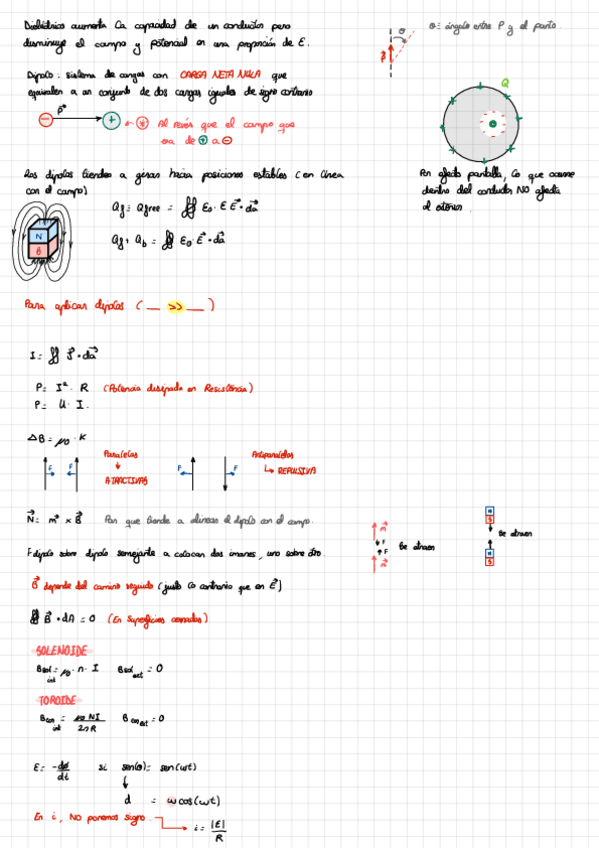 Dieléctricos aumenta la capacidad de un conductor pero
disminuye el campo y potencial en una proporción de E.
θ = ángulo entre P y el punto.
Dipolo: sistema de cargas con CARGA NETA NULA que
equivalen a un conjunto de dos cargas iguales de signo contrario
Al revés que el campo que
va de + a -
Q
Los dipolos tienden a girar hacia posiciones estables (en línea
con el campo)
Por efecto pantalla, lo que ocurre
dentro del conductor NO afecta
al exterior.
Qf = Qfree = ∯ ε₀ · ε E⃗ · da⃗
Qf + Qb = ∯ ε₀ · E⃗ · da⃗
N
Para aplicar dipolos ( __ >> __ )
I = ∬ J⃗ · da⃗
P = I² · R (Potencia disipada en Resistencia)
P = U · I.
ΔB = μ₀ · K
Paralelas
ATRACTIVAS
Antiparalelas
REPULSIVA
F F F F
N⃗ = m⃗ × B⃗ Par que tiende a alinear el dipolo con el campo.
F dipolo sobre dipolo semejante a colocar dos imanes, uno sobre otro.
Se atraen
Se atraen
B⃗ depende del camino seguido (justo lo contrario que en E⃗)
∯ B⃗ · dA = 0 (En superficies cerradas)
SOLENOIDE
Bsol int = μ₀ · n · I Bsol ext = 0
TOROIDE
int = μ₀ NI / 2πR ext = 0
E = -dø/dt si sen(θ) = sen(ωt)
d = ω cos(ωt)
En i, NO ponemos signo.
i = |E| / R